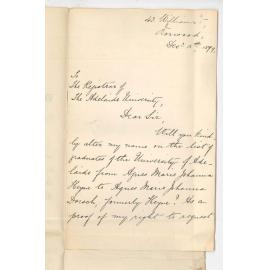 43 William St,
Norwood,
Dec. 11th, 1899.
To
The Registrar of
The Adelaide University,
Dear Sir,
Will you kind
ly alter my name on the list of
graduates of the University of Ade-
laide from Agnes Marie Johanna
Heyne to Agnes Marie Johanna
Dorsch, formerly Heyne? As a
proof of my right to request